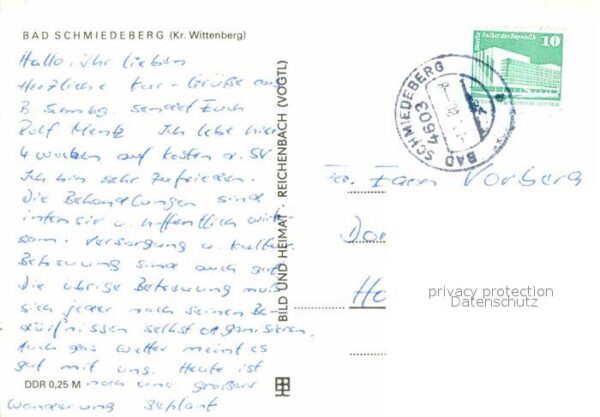 BAD SCHMIEDEBERG (Kr. Wittenberg)
Hallo, ihr lieben
Herzliche Kur-Grüße aus
B. Schmbg. sendet Euch
Rolf Ich lebe hier
4 Wochen auf Kosten d. SV
Ich bin sehr zufrieden.
Die Behandlungen sind
intensiv u. hoffentlich wirk-
sam. Versorgung u. kulture
Betreuung sind auch gut
Die übrige Betreuung muß
sich jeder nach seinen Be-
dürfnissen selbst organisieren.
Auch das Wetter meint es
gut mit uns. Heute ist
noch eine größere
Wanderung geplant
DDR 0,25 M
BILD UND HEIMAT · REICHENBACH (VOGTL)
Berlin Palast der Republik
10
BAD SCHMIEDEBERG
4603
Fam. Vorberg
privacy protection
Datenschutz